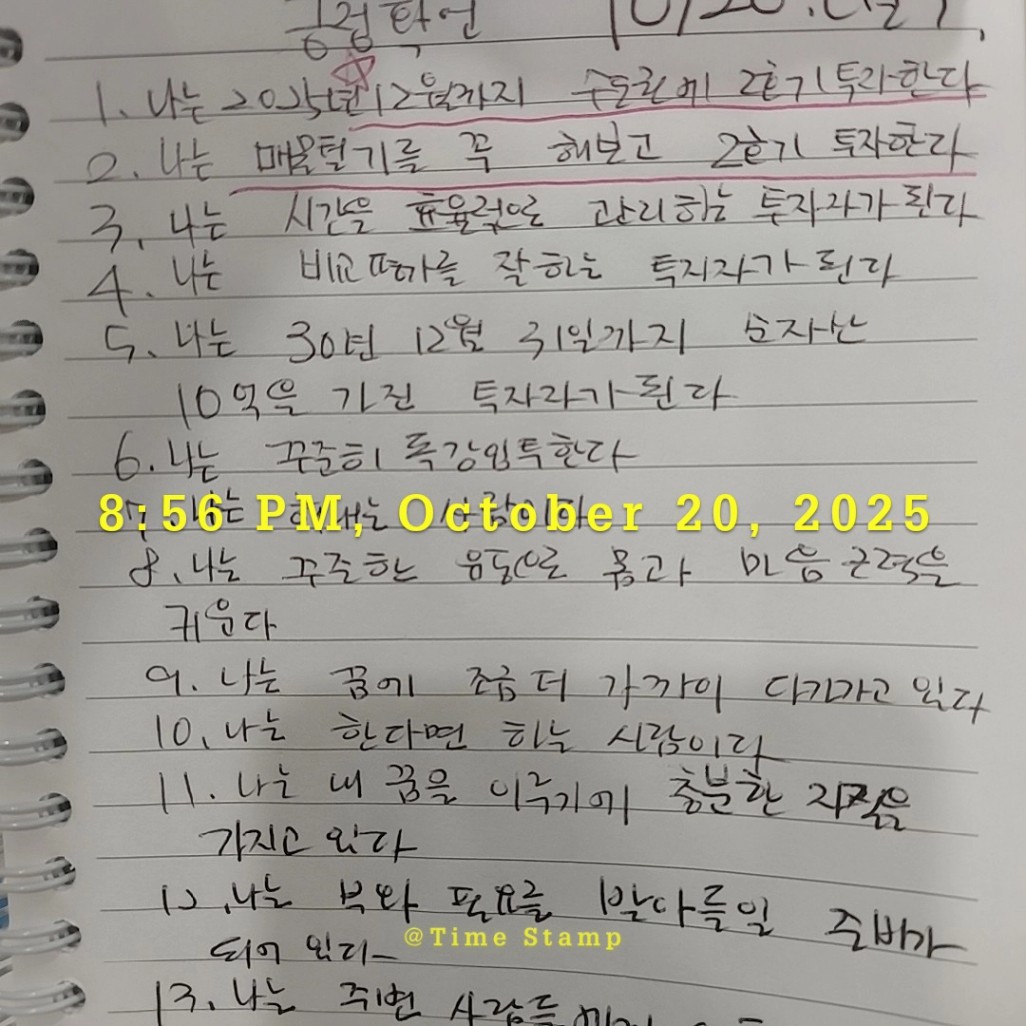 긍정확언 10/20.
1. 나는 2025년 12월까지 수도권에 2호기 투자한다
2. 나는 매물털기를 꼭 해보고 2호기 투자한다
3. 나는 시간을 효율적으로 관리하는 투자자가 된다
4. 나는 비교평가를 잘하는 투자자가 된다
5. 나는 30년 12월 31일까지 순자산
10억을 가진 투자자가 된다
6. 나는 꾸준히 독강임투한다
7. 나는 해내는 사람이다
8:56 PM, October 20, 2025
8. 나는 꾸준한 운동으로 몸과 마음 근력을
키운다
9. 나는 꿈에 조금 더 가까이 다가가고 있다
10. 나는 한다면 하는 사람이다
11. 나는 내 꿈을 이루기에 충분한 자격을
가지고 있다
12. 나는 부와 풍요를 받아들일 준비가
되어 있다
@Time Stamp
13. 나는 주변 사람들에게